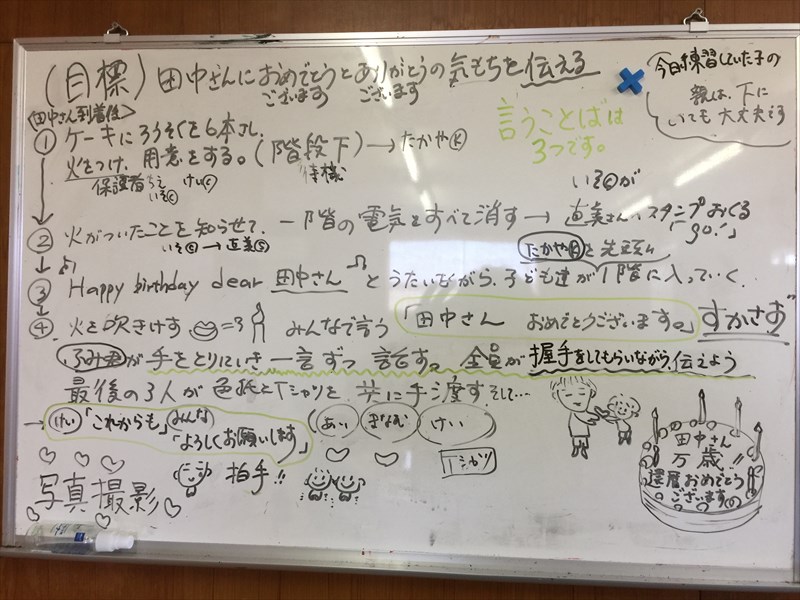 (目標) 田中さんにおめでとうとありがとうの気もちを伝える
ございます ございます
今日練習していた子の
親は、下に
いても大丈夫です
<田中さん到着後>
① ケーキにろうそくを6本さし、
火をつけ、用意をする。(階段下)→たかやⓀ
保護者 けいⒸ 待機
いそⒸ
言うことばは
3つです。
いそⒸが
② 火がついたことを知らせて、一階の電気をすべて消す→直美さんへスタンプおくる
いそⒸ→直美Ⓢ 「go!」
たかやⓀを先頭に
③ Happy birthday dear 田中さん とうたいながら、子ども達が1階に入っていく。
④ 火を吹きけす みんなで言う 「田中さん おめでとうございます。」 すかさず
ふみ君が手をとりにいき一言ずつ話す。全員が握手をしてもらいながら、伝えよう
最後の3人が色紙とTシャツを、共に手渡す。そして…
→ けい 「これからも」 みんな 「よろしくお願いします」
あい ぎなむ けい
Tシャツ
写真撮影
拍手!!
田中さん
万歳!!
還暦おめでとう
ございます